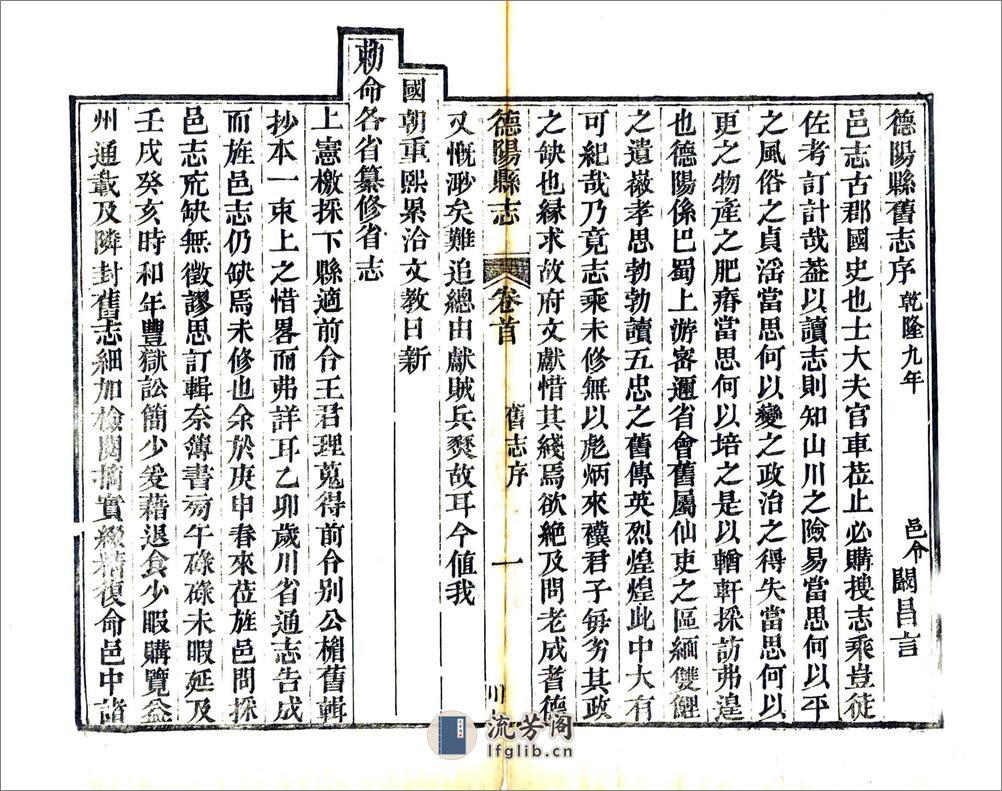 德陽縣舊志序 乾隆九年 邑令 闞昌言
邑志古郡國史也士大夫官車莅止必購搜志乘豈徒
佐考訂計哉葢以讀志則知山川之險易當思何以平
之風俗之貞滛當思何以變之政治之得失當思何以
更之物產之肥瘠當思何以培之是以輶軒採訪弗遑
也德陽係巴蜀上游密邇省會舊屬仙吏之區緬雙鯉
之遺徽孝思勃勃讀五忠之舊傳英烈煌煌此中大有
可紀哉乃竟志乘未修無以彪炳來禩君子每劣其政
之缺也縁求故府文獻惜其綫焉欲絶及問老成耆德
德陽縣志 卷首 舊志序 一
又慨渺矣難追總由獻賊兵燹故耳今值我
國朝重熙累洽文教日新
勅命各省纂修省志
上憲檄採下縣適前令王君理蒐得前令别公楣舊輯
抄本一束上之惜畧而弗詳耳乙卯歲川省通志告成
而旌邑志仍缺焉未修也余於庚申春來莅旌邑問採
邑志㐬缺無徵謬思訂輯奈簿書旁午碌碌未暇延及
壬戌癸亥時和年豐獄訟簡少爰藉退食少暇購覽益
州通載及隣封舊志細加檢閱摘實綴精復命邑中諸
流芳阁
lfglib.cn